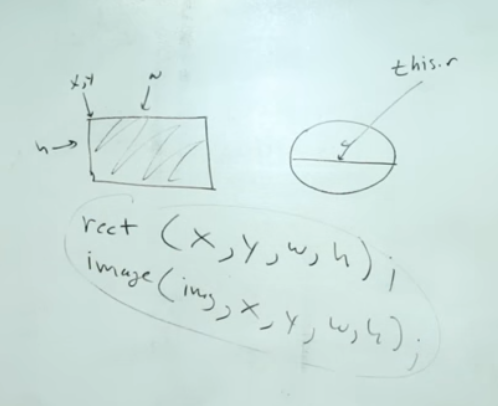 x,y
w
this.r
h
rect (x,y,w,h);
image(img,x,y,w,h);